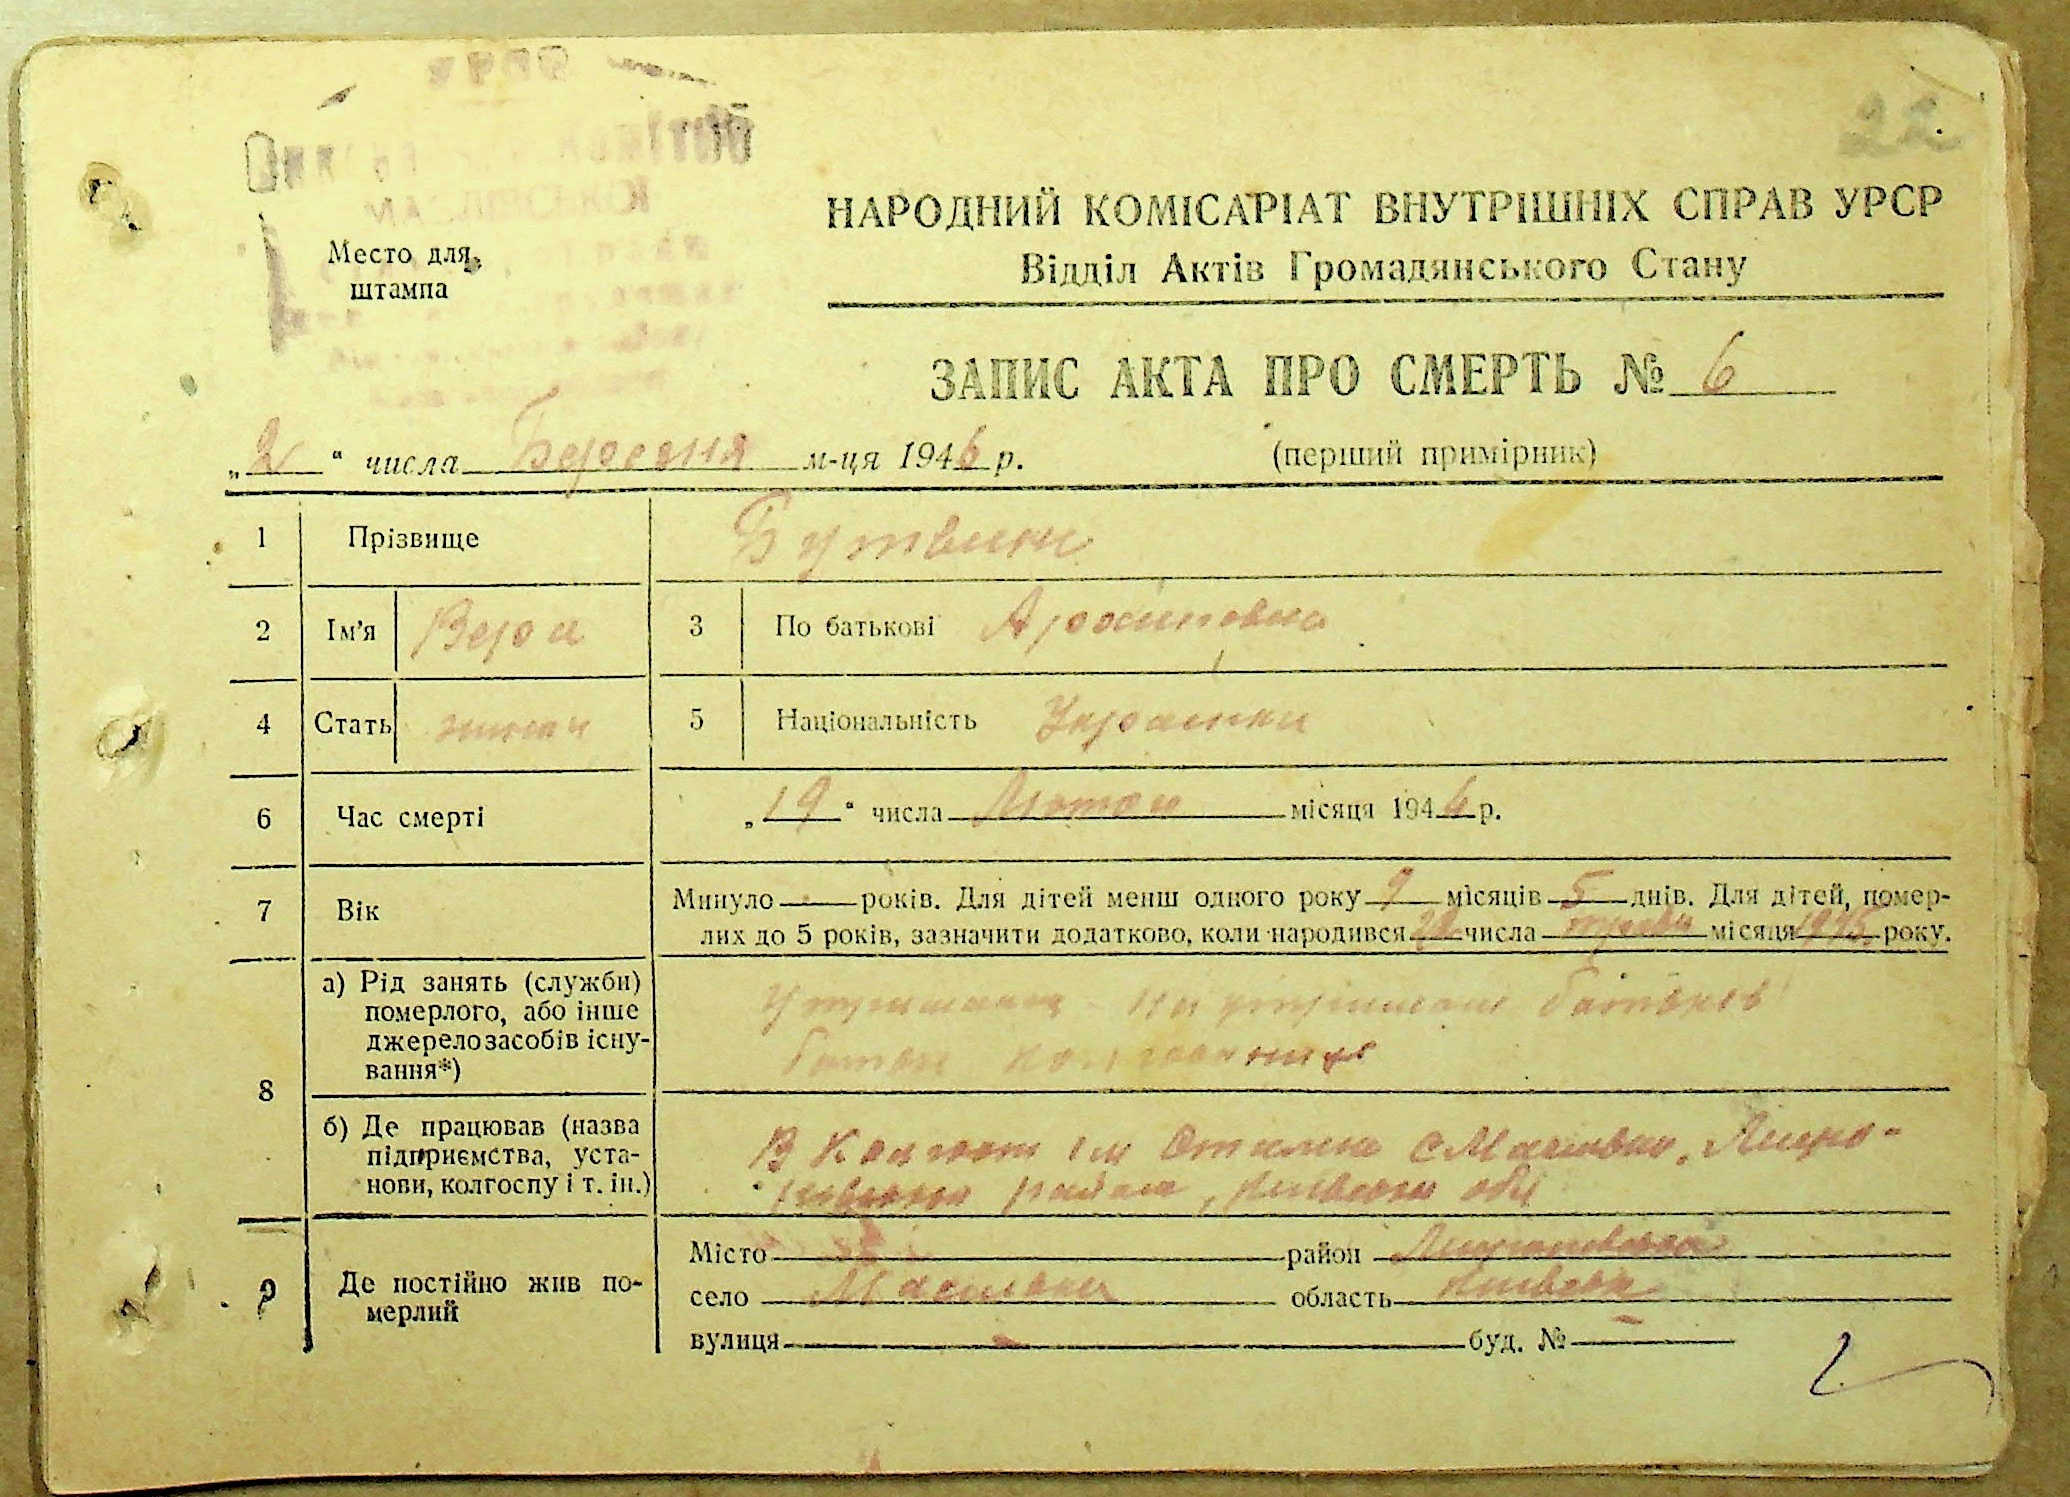 22
Место для
штампа
НАРОДНИЙ КОМІСАРІАТ ВНУТРІШНІХ СПРАВ УРСР
Відділ Актів Громадянського Стану
ЗАПИС АКТА ПРО СМЕРТЬ № 6
„2“ числа Березня м-ця 1946 р. (перший примірник)
1 Прізвище Бутвина
2 Ім'я Вера 3 По батькові Архиповна
4 Стать жіноч 5 Національність Украінка
6 Час смерті „19“ числа Лютого місяця 1946 р.
7 Вік Минуло - років. Для дітей менш одного року 9 місяців 5 днів. Для дітей, помер-
лих до 5 років, зазначити додатково, коли народився числа травн місяця 1945 року.
8 а) Рід занять (служби)
померлого, або інше
джерело засобів існу-
вання*)
на утриманні батьків
батьки колгоспники
б) Де працював (назва
підприємства, уста-
нови, колгоспу і т. ін.)
В Колгоспі ім Сталіна с Маслівки, Миро-
нівського району, Київської обл
9 Де постійно жив по-
мерлий
Місто район Миронівський
село Маслівка область Київська
вулиця - буд. № -